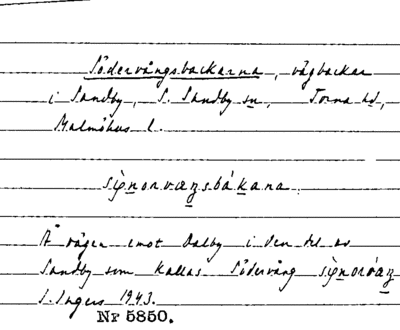 Södervångsbackarna, vägbackar
i Sandby, S. Sandby sn, Torna hd,
Malmöhus l.
Å vägen emot Dalby i den del av
Sandby som kallas Södervång
I. Ingers 1943.
Nr 5850.